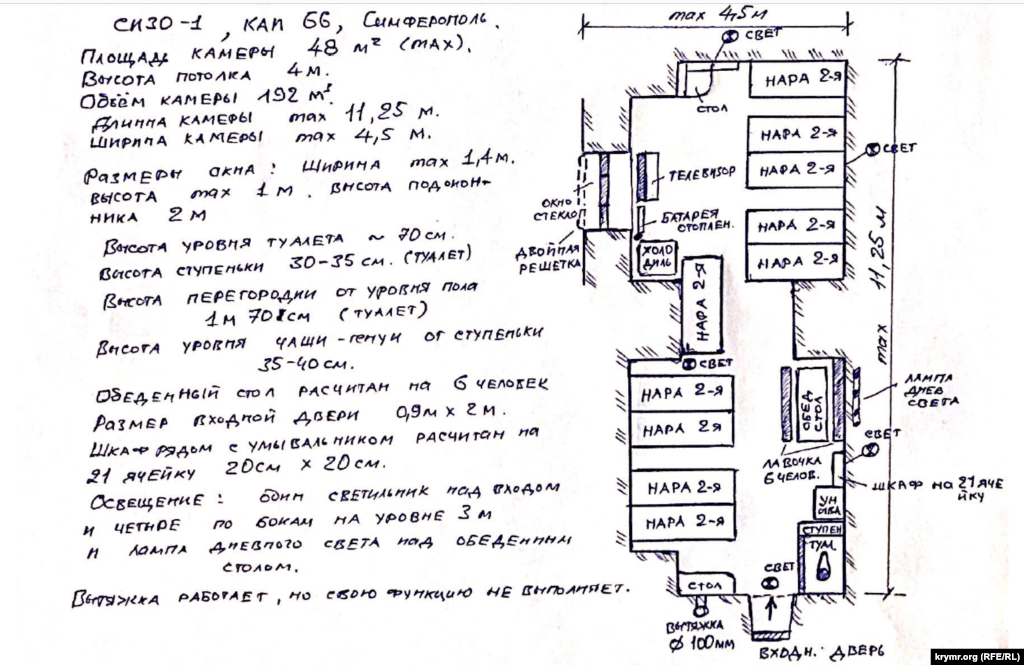 СИЗО-1, КАП 66, Симферополь.
Площадь камеры 48 м² (max).
Высота потолка 4 м.
Объём камеры 192 м³.
Длинна камеры max 11,25 м.
Ширина камеры max 4,5 м.
Размеры окна: Ширина max 1,4 м.
высота max 1 м. высота подокон-
ника 2 м
Высота уровня туалета ~ 70 см.
Высота ступеньки 30-35 см. (туалет)
Высота перегородки от уровня пола
1м 70 см (туалет)
Высота уровня чаши-генуи от ступеньки
35-40 см.
Обеденный стол расчитан на 6 человек
Размер входной двери 0,9м х 2 м.
Шкаф рядом с умывальником расчитан на
21 ячейку 20см х 20см.
Освещение: один светильник над входом
и четыре по бокам на уровне 3 м
и лампа дневного света над обеденным
столом.
Вытяжка работает, но свою функцию не выполняет.
max 4,5 м
СВЕТ
СТОЛ
НАРА 2-я
НАРА 2-я
НАРА 2-я
СВЕТ
НАРА 2-я
НАРА 2-я
ОКНО
СТЕКЛО
ДВОЙНАЯ
РЕШЕТКА
ТЕЛЕВИЗОР
БАТАРЕЯ
ОТОПЛЕН.
ХОЛО
ДИЛЬ
НАРА 2-я
max 11,25 м
СВЕТ
НАРА 2-я
НАРА 2я
НАРА 2-я
НАРА 2-я
ОБЕД
СТОЛ
ЛАМПА
ДНЕВ
СВЕТА
СВЕТ
ЛАВОЧКА
6 ЧЕЛОВ.
ШКАФ НА 21 ЯЧЕ
ЙКУ
УМ
СТУПЕН
ТУАЛ
СВЕТ
СТОЛ
ВЫТЯЖКА
Ø 100мм
ВХОДН. ДВЕРЬ
krymr.org (RFE/RL)